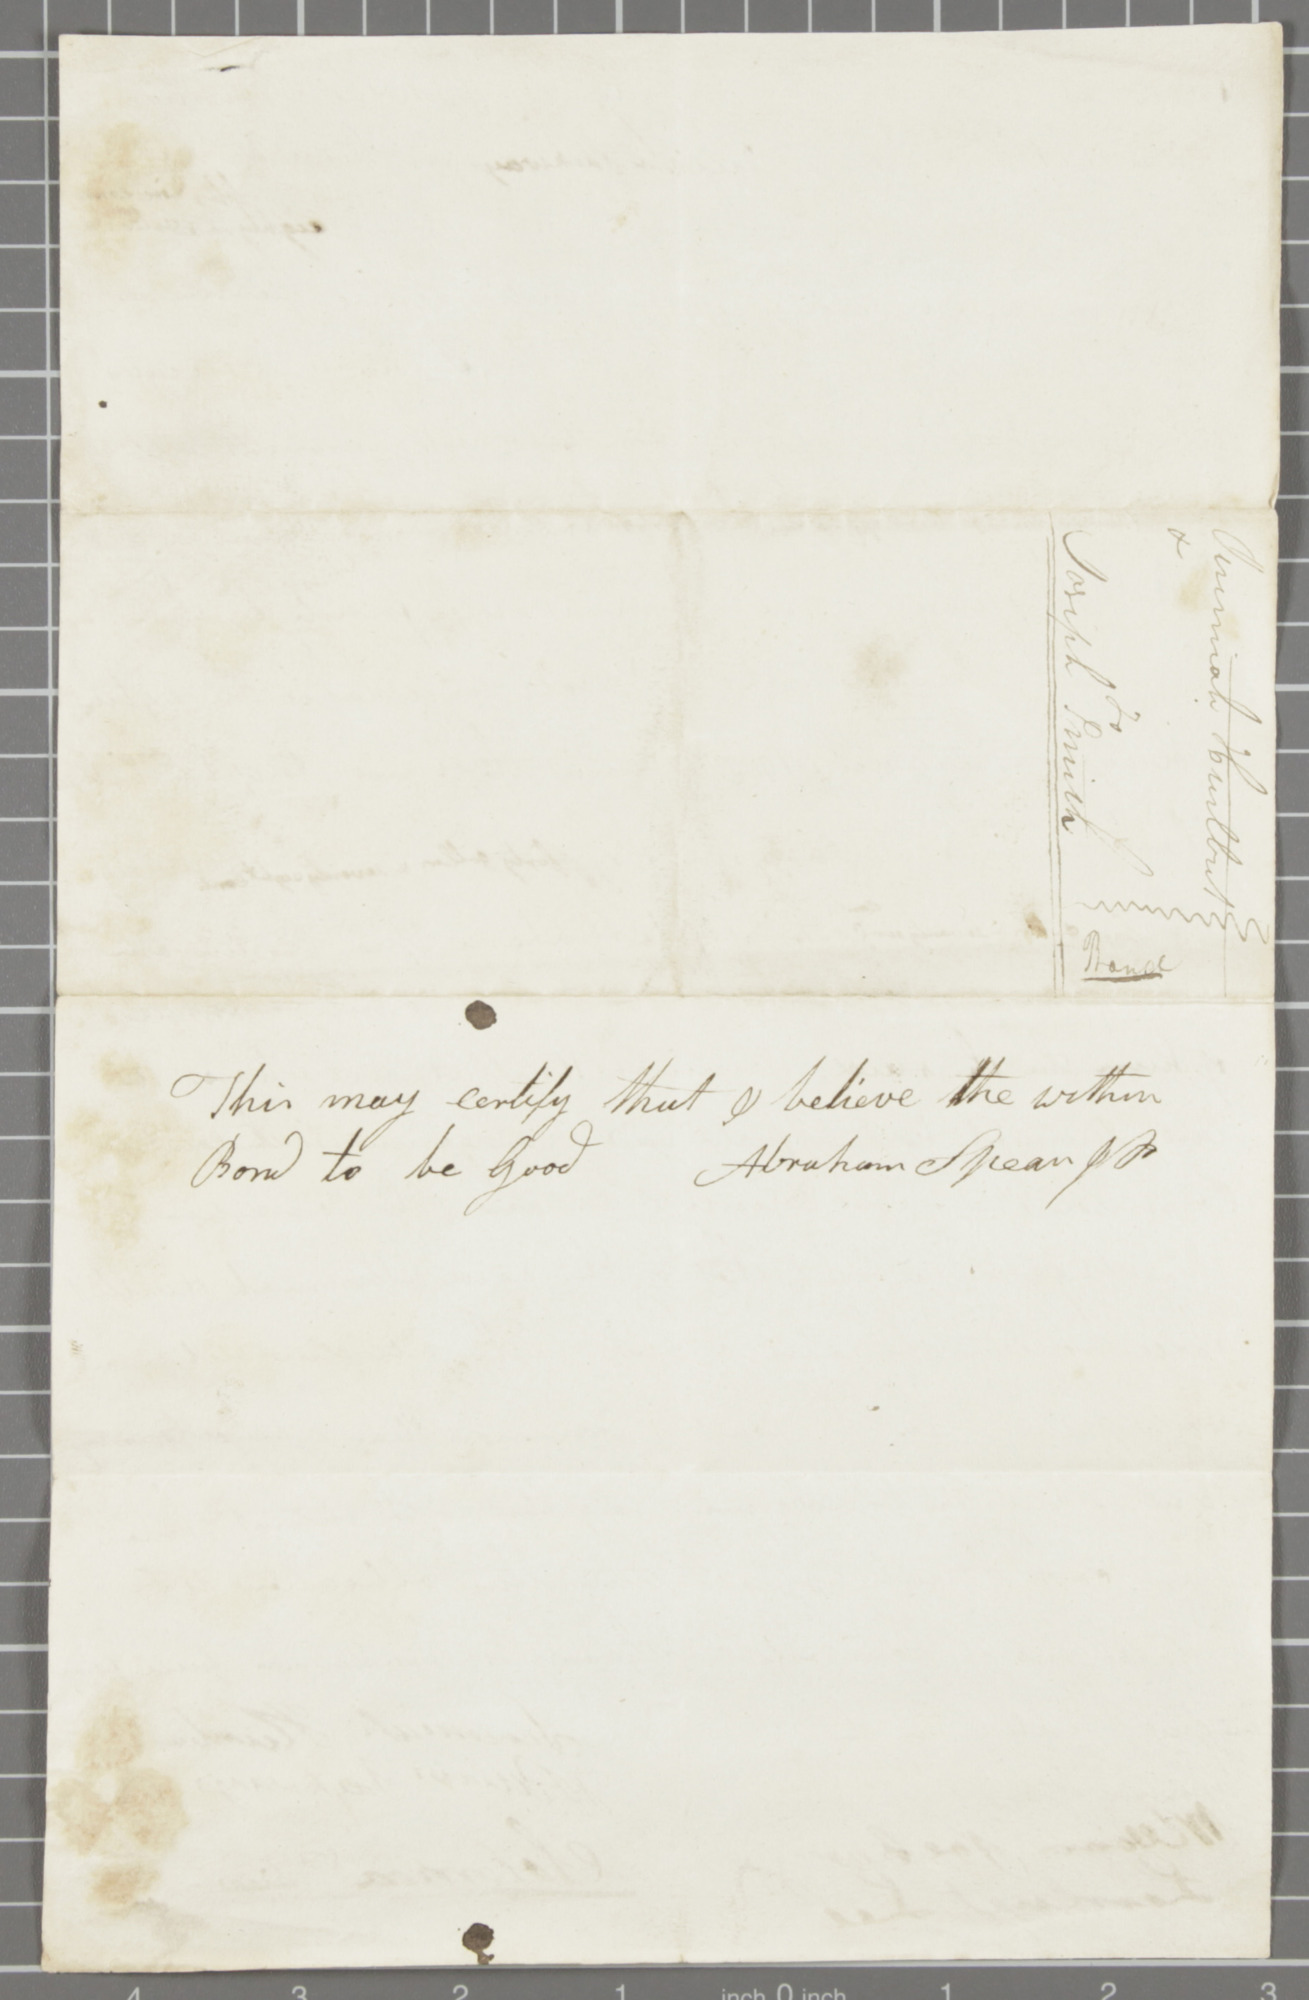 Jeremiah Hurlbut
&
To
Joseph Smith
Bond
This may certify that I believe the within
Bond to be Good Abraham Spear JP
4 3 2 1 inch 0 inch 1 2 3